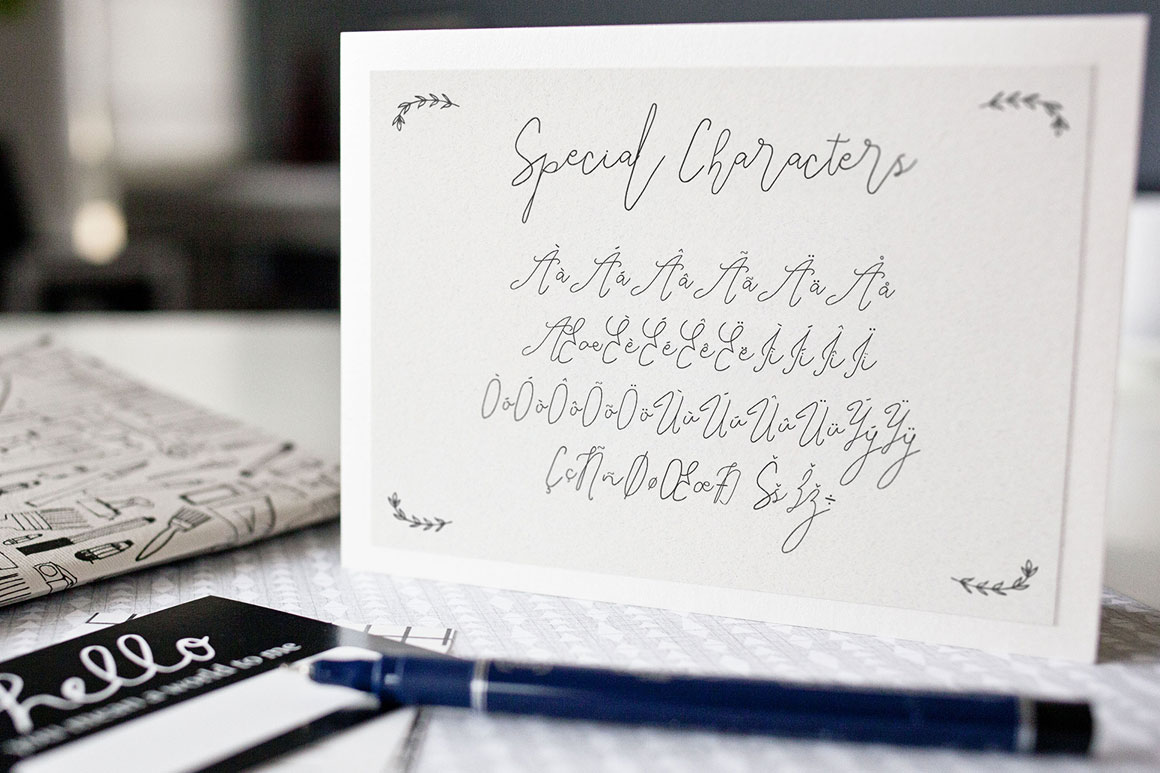 Special Characters
Àà Áá Ââ Ãã Ää Åå
ÆæÈèÉéÊêËëÌìÍíÎîÏï
ÒóÓòÔôÕõÖöÙùÚúÛûÜüÝýŸÿ
ÇçÑñØøŒœÐ Šš Žž÷
hello
world to me